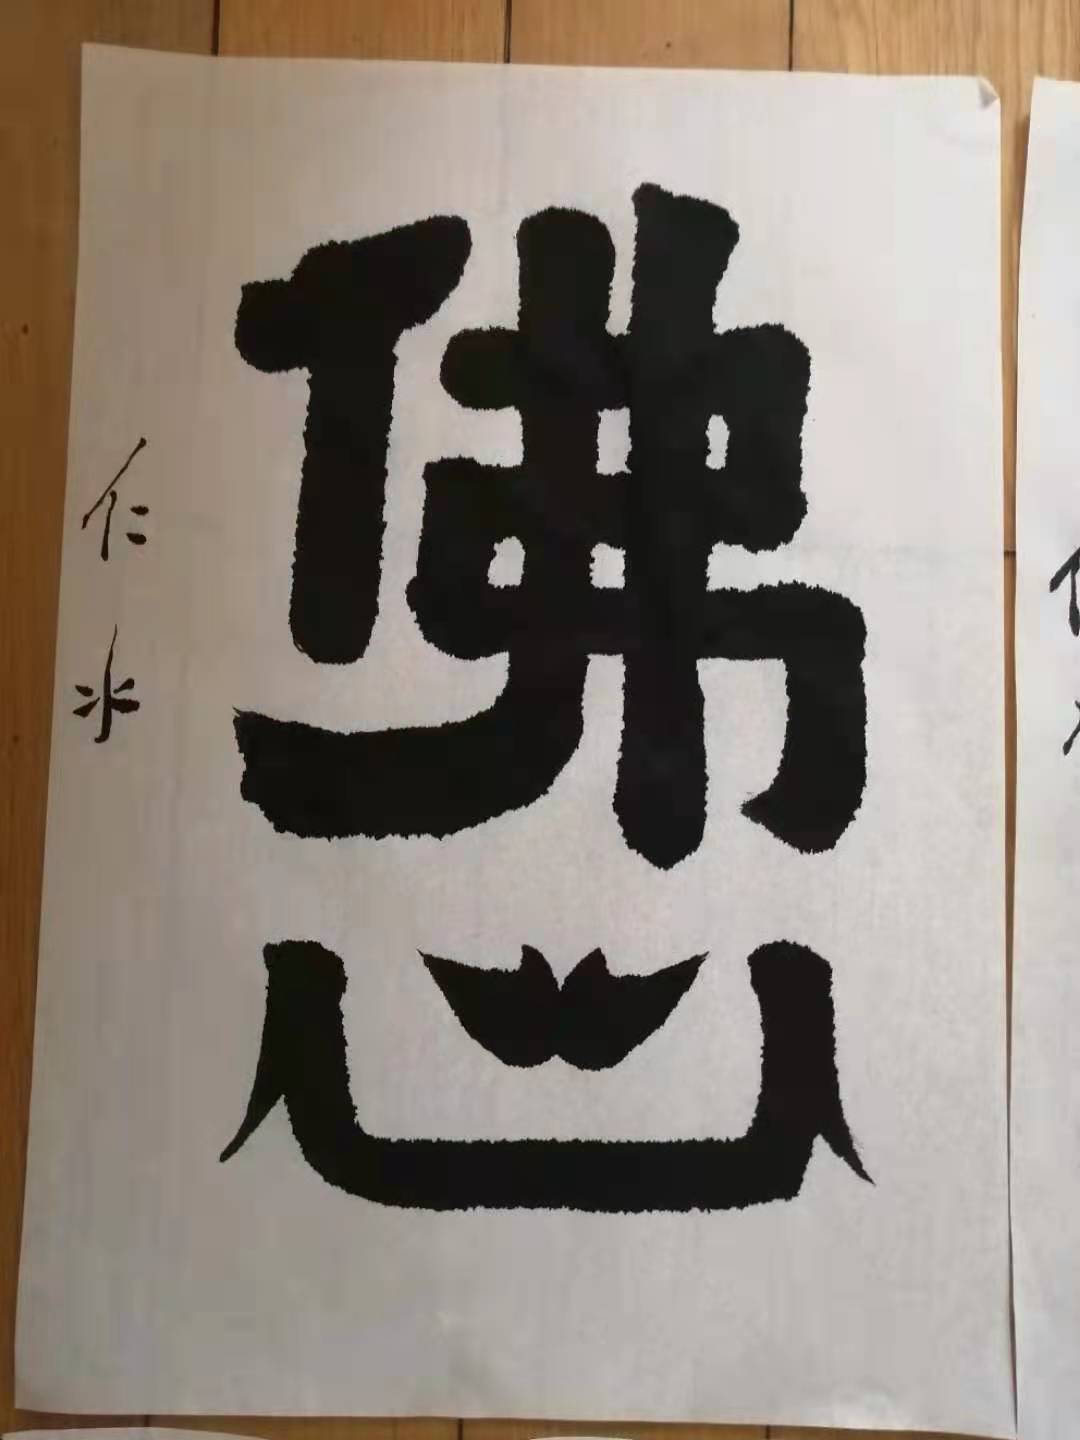 佛心
仁水